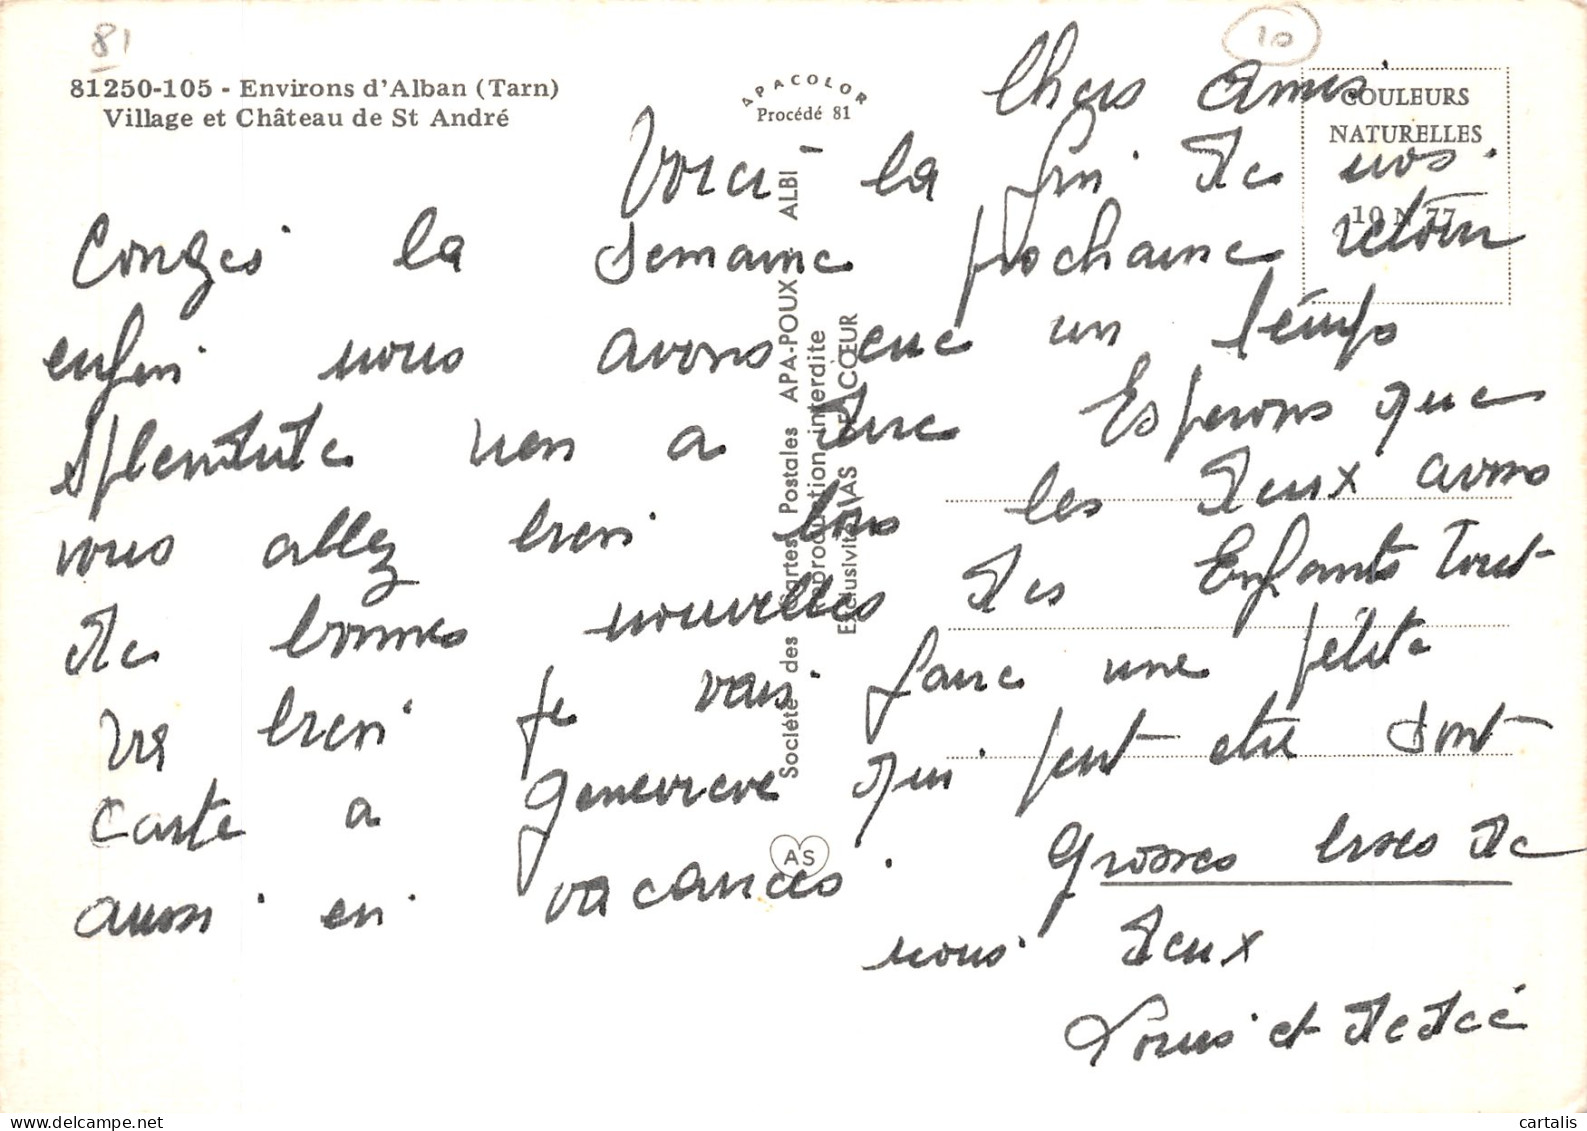 81
10
81250-105 - Environs d'Alban (Tarn)
Village et Château de St André
APACOLOR
Procédé 81
COULEURS
NATURELLES
10 N 77
Société des Cartes Postales APA-POUX - ALBI
Reproduction interdite
Exclusivité AS DE CŒUR
AS
Chers Amis
Voici la fin de nos
Congés la semaine prochaine retour
enfin nous avons eue un temps
splendide rien a dire Esperons que
vous allez bien tous les deux avons
de bonnes nouvelles des Enfants Tout
va bien je vais faire une petite
carte a Genevieve qui peut etre sont
aussi en vacances Grosses bises de
nous deux
Louis et dedée
cartalis